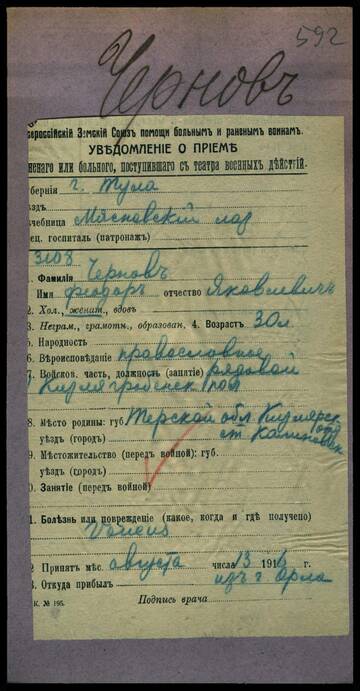 592
Черновъ
сероссійскій Земскій Союзъ помощи больнымъ и раненымъ воинамъ.
УВѢДОМЛЕНІЕ О ПРІЕМѢ
ненаго или больного, поступившаго съ театра военныхъ дѣйствій.
бернія г. Тула
ѣздъ
чебница Мясновскій лаз
ец. госпиталь (патронажъ)
3108
Фамилія Черновъ
Имя Феодоръ отчество Яковлевичъ
2. Хол., женит., вдовъ
3. Неграм., грамотн., образован, 4. Возрастъ 30 л
5. Народность
6. Вѣроисповѣданіе православное
7. Войсков. часть, должность (занятіе) рядовой
Кизляргребенск 1 пол
8. Мѣсто родины: губ. Терской обл. Кизлярск
уѣздъ (городъ) отд ст.
9. Мѣстожительство (передъ войной): губ.
уѣздъ (городъ)
0. Занятіе (передъ войной)
1. Болѣзнь или поврежденіе (какое, когда и гдѣ получено)
2 Принятъ мѣс. августа числа 13 1916
3. Откуда прибылъ изъ г Орла
К. № 195. Подпись врача